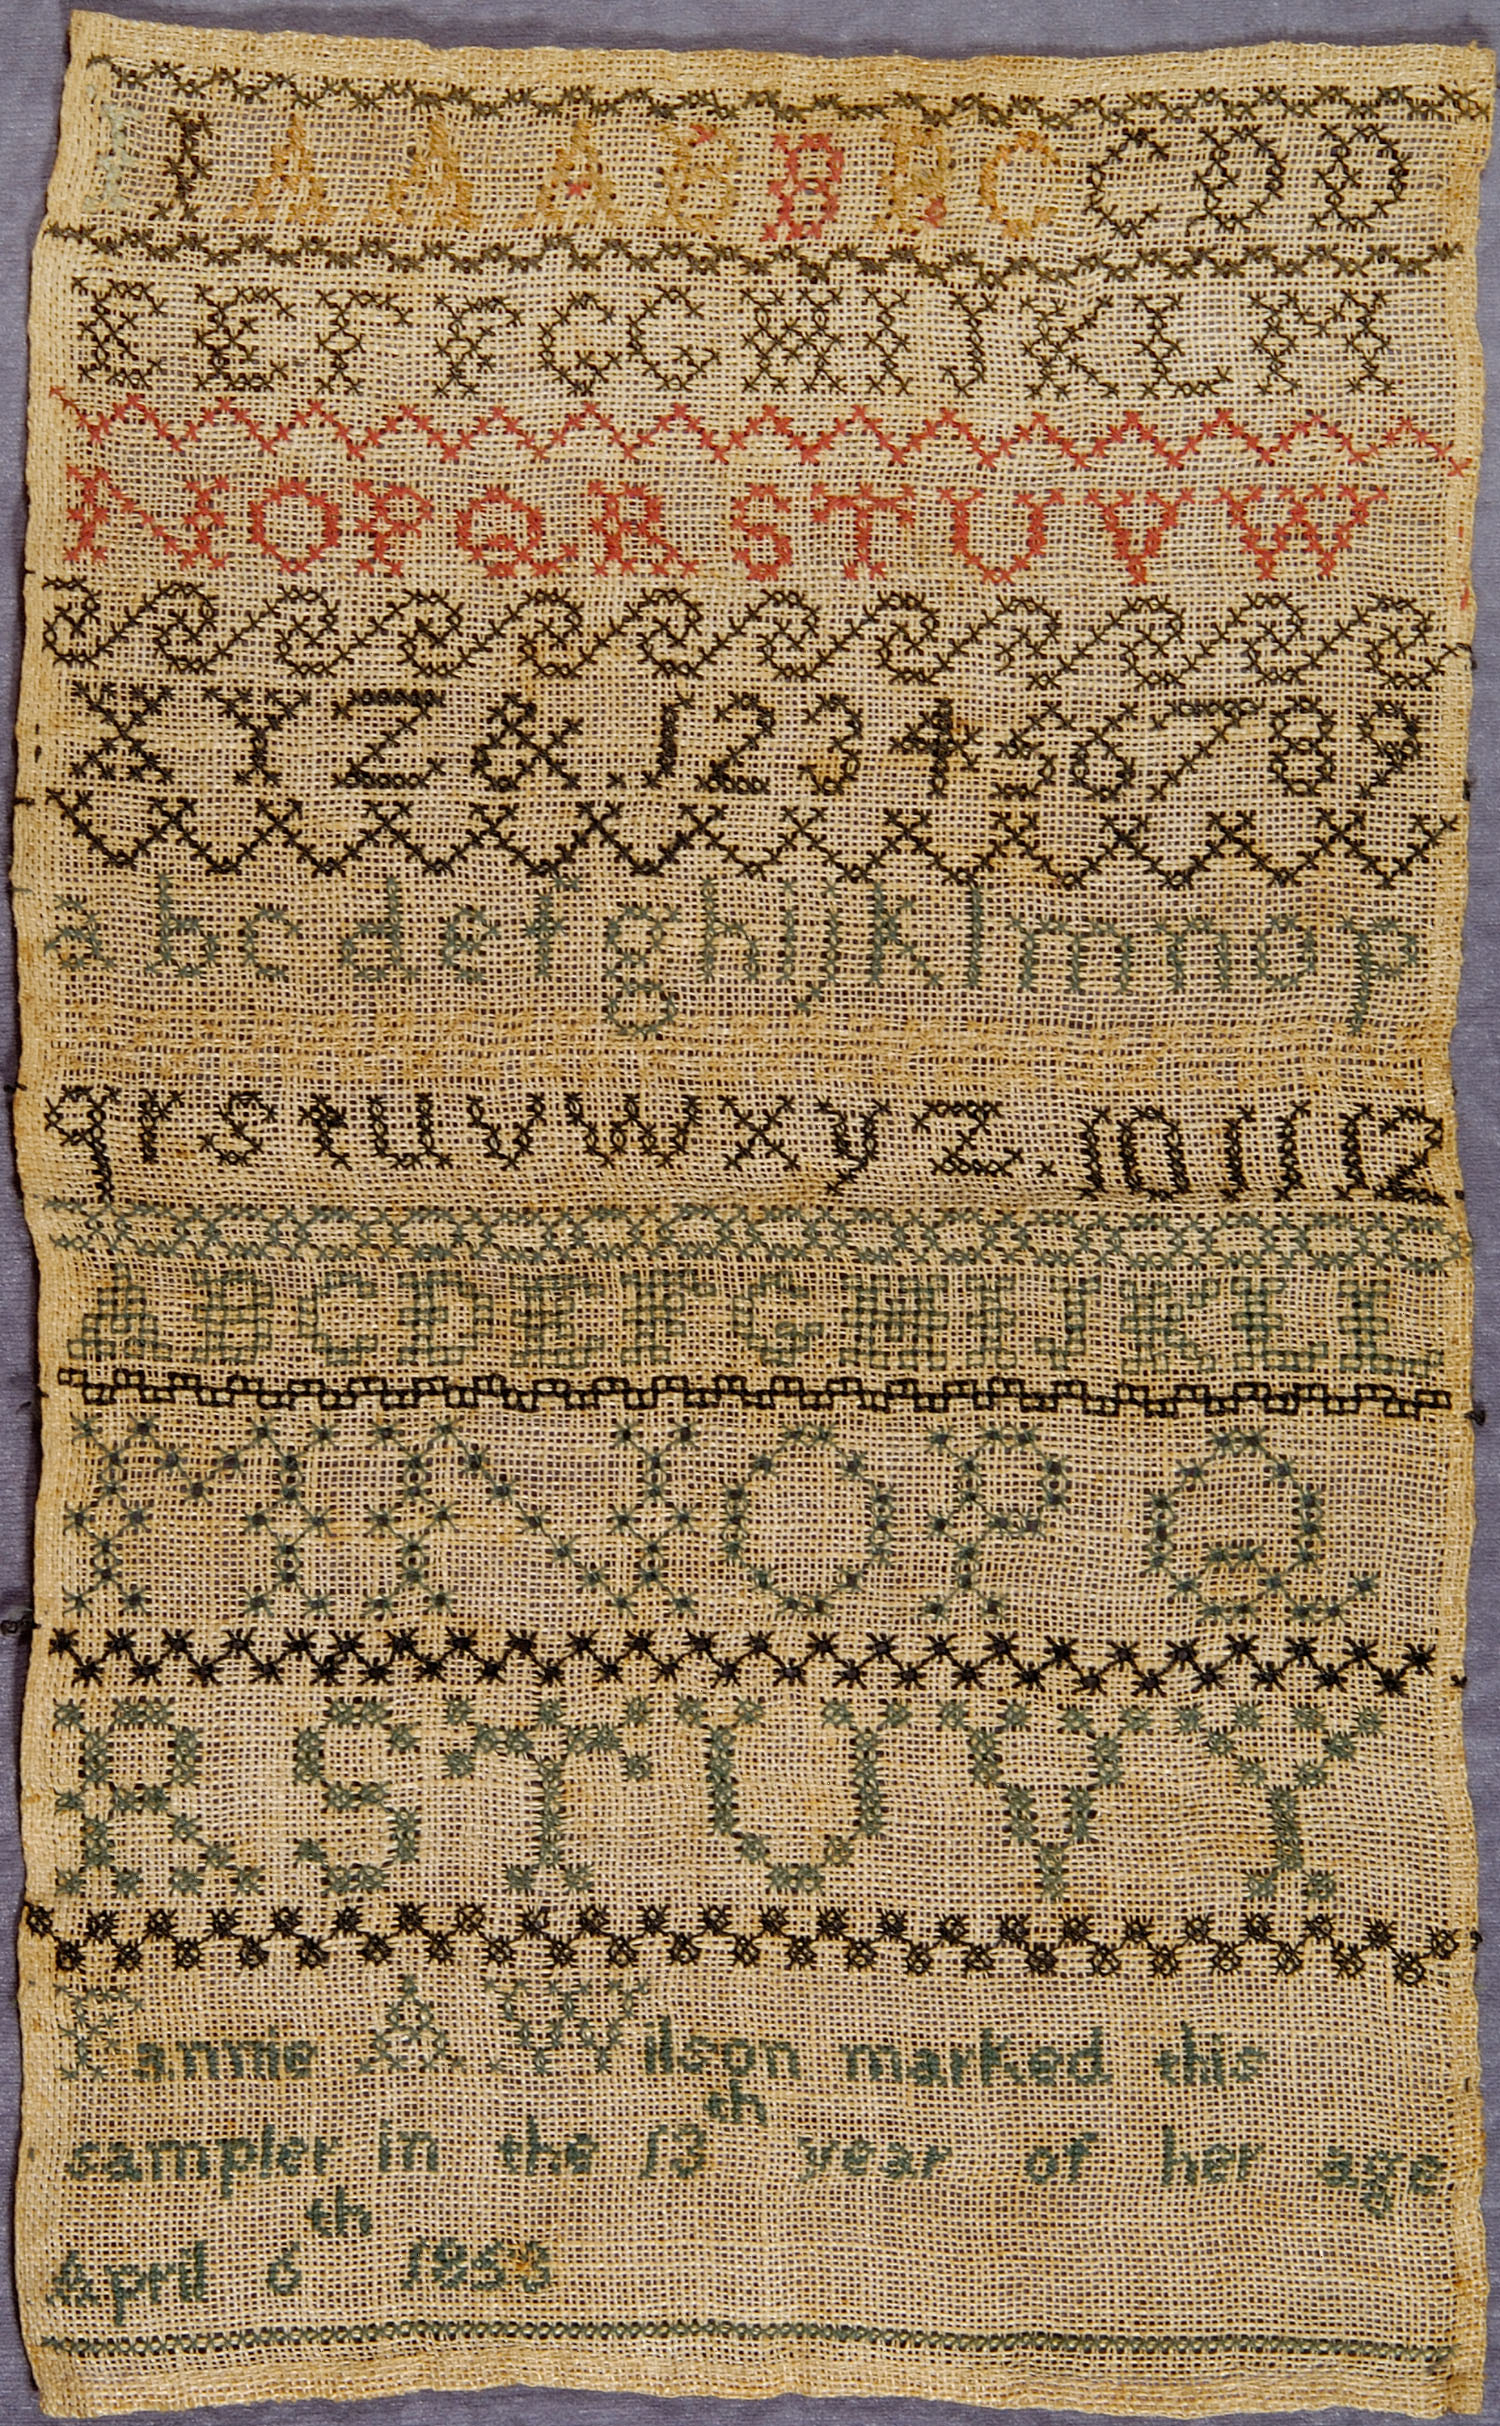 I I A A A B B B C C D D
E E F F G G H I J K L M
N O P Q R S T U V W
X Y Z & . 1 2 3 4 5 6 7 8 9
a b c d e f g h i j k l m n o p
q r s t u v w x y z . 10 11 12
A B C D E F G H I J K L L
M N O P Q
R S T U V Y
Fannie A Wilson marked this
sampler in the 13th year of her age.
April 6th 1853